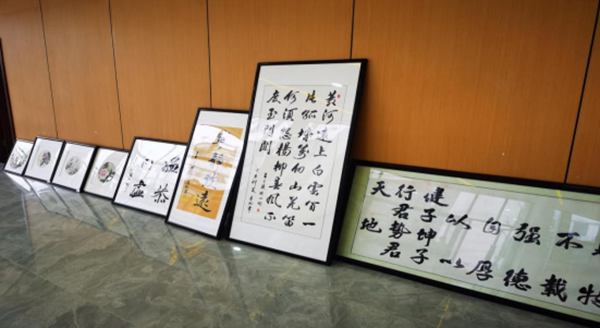 黄河远上白雲间一
片孤城萬仞山羌笛
何须怨楊柳春风不
度玉门關
天行健
君子以自强不
地势坤
君子以厚德载物
遠
恭